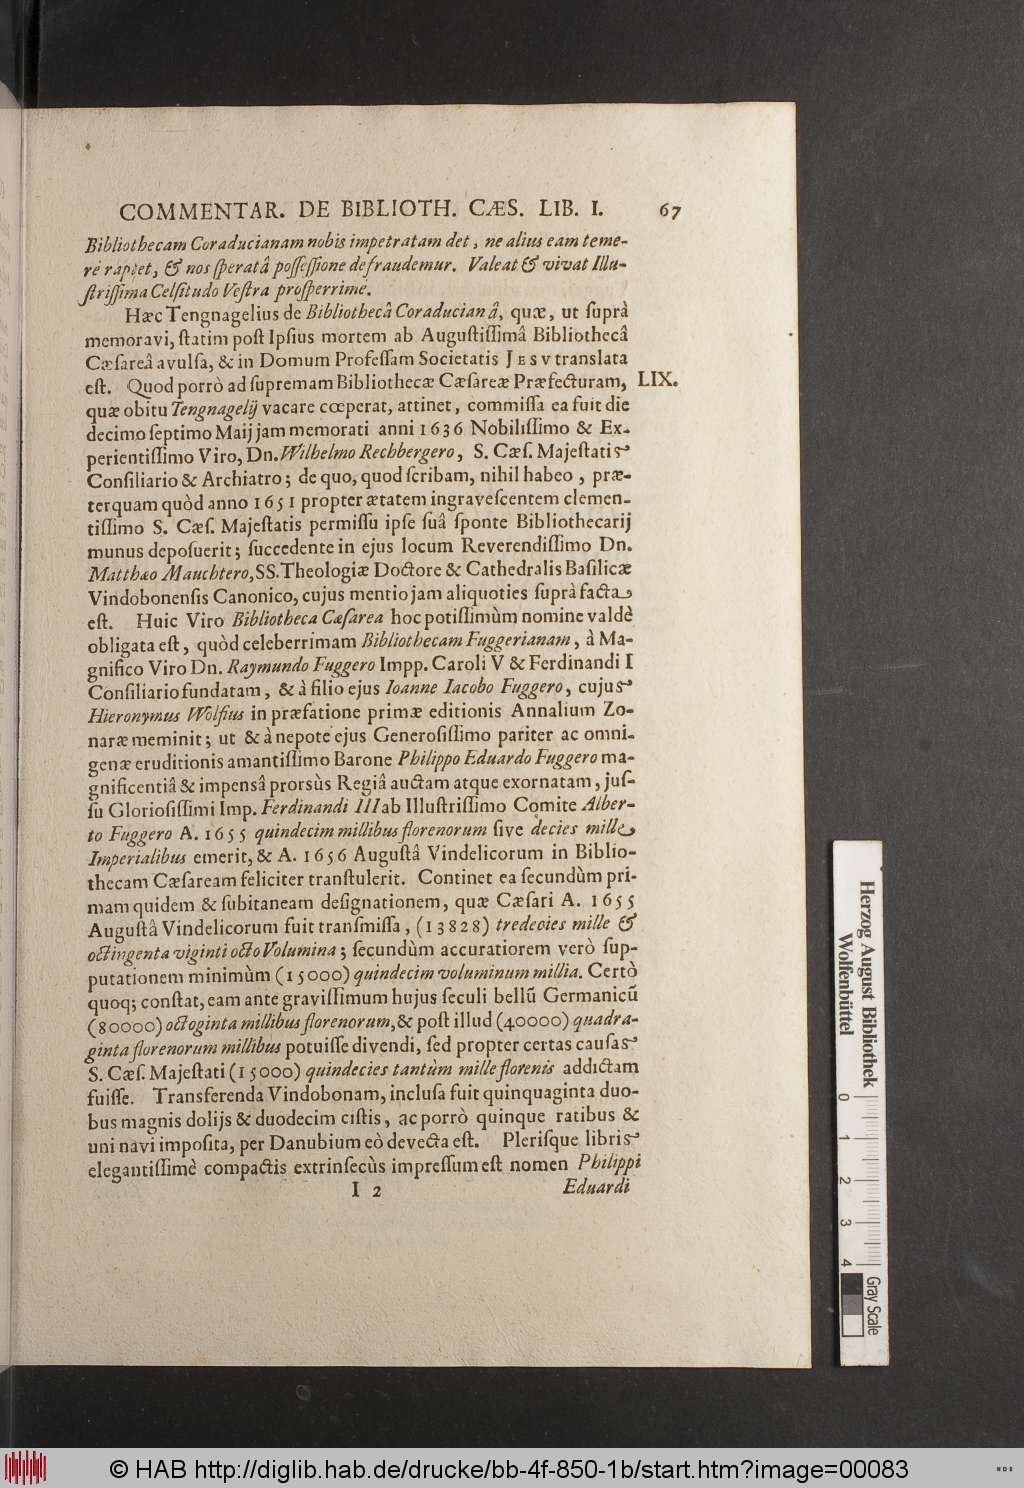 COMMENTAR. DE BIBLIOTH. CÆS. LIB. I. 67
Bibliothecam Coraducianam nobis impetratam det, ne alius eam teme-
rè rapiet, & nos ſperatâ poſſeſſione defraudemur. Valeat & vivat Illu-
ſtriſſima Celſitudo Veſtra proſperrimè.
Hæc Tengnagelius de Bibliothecâ Coraducianâ, quæ, ut ſuprà
memoravi, ſtatim poſt Ipſius mortem ab Auguſtiſſimâ Bibliothecâ
Cæſareâ avulſa, & in Domum Profeſſam Societatis JESV translata
eſt. Quod porrò ad ſupremam Bibliothecæ Cæſareæ Præfecturam, LIX.
quæ obitu Tengnagelij vacare cœperat, attinet, commiſſa ea fuit die
decimo ſeptimo Maij jam memorati anni 1636 Nobiliſſimo & Ex-
perientiſſimo Viro, Dn. Wilhelmo Rechbergero, S. Cæſ. Majeſtatis
Conſiliario & Archiatro; de quo, quod ſcribam, nihil habeo, præ-
terquam quòd anno 1651 propter ætatem ingraveſcentem clemen-
tiſſimo S. Cæſ. Majeſtatis permiſſu ipſe ſuâ ſponte Bibliothecarij
munus depoſuerit; ſuccedente in ejus locum Reverendiſſimo Dn.
Matthæo Mauchtero, SS. Theologiæ Doctore & Cathedralis Baſilicæ
Vindobonenſis Canonico, cujus mentio jam aliquoties ſuprà facta
eſt. Huic Viro Bibliotheca Cæſarea hoc potiſſimùm nomine valdè
obligata eſt, quòd celeberrimam Bibliothecam Fuggerianam, à Ma-
gnifico Viro Dn. Raymundo Fuggero Impp. Caroli V & Ferdinandi I
Conſiliario fundatam, & à filio ejus Ioanne Iacobo Fuggero, cujus
Hieronymus Wolfius in præfatione primæ editionis Annalium Zo-
naræ meminit; ut & à nepote ejus Generoſiſſimo pariter ac omni-
genæ eruditionis amantiſſimo Barone Philippo Eduardo Fuggero ma-
gnificentiâ & impensâ prorsùs Regiâ auctam atque exornatam, juſ-
ſu Glorioſiſſimi Imp. Ferdinandi III ab Illuſtriſſimo Comite Alber-
to Fuggero A. 1655 quindecim millibus florenorum ſive decies mille
Imperialibus emerit, & A. 1656 Auguſtâ Vindelicorum in Biblio-
thecam Cæſaream feliciter tranſtulerit. Continet ea ſecundùm pri-
mam quidem & ſubitaneam deſignationem, quæ Cæſari A. 1655
Auguſtâ Vindelicorum fuit tranſmiſſa, (13828) tredecies mille &
octingenta viginti octo Volumina; ſecundùm accuratiorem verò ſup-
putationem minimùm (15000) quindecim voluminum millia. Certò
quoq; conſtat, eam ante graviſſimum hujus ſeculi bellũ Germanicũ
(80000) octoginta millibus florenorum, & poſt illud (40000) quadra-
ginta florenorum millibus potuiſſe divendi, ſed propter certas cauſas
S. Cæſ. Majeſtati (15000) quindecies tantùm mille florenis addictam
fuiſſe. Transferenda Vindobonam, incluſa fuit quinquaginta duo-
bus magnis dolijs & duodecim ciſtis, ac porrò quinque ratibus &
uni navi impoſita, per Danubium eò devecta eſt. Pleriſque libris
elegantiſſimè compactis extrinſecùs impreſſum eſt nomen Philippi
I 2 Eduardi
Herzog August Bibliothek
Wolfenbüttel
0 1 2 3 4
Gray Scale
© HAB http://diglib.hab.de/drucke/bb-4f-850-1b/start.htm?image=00083